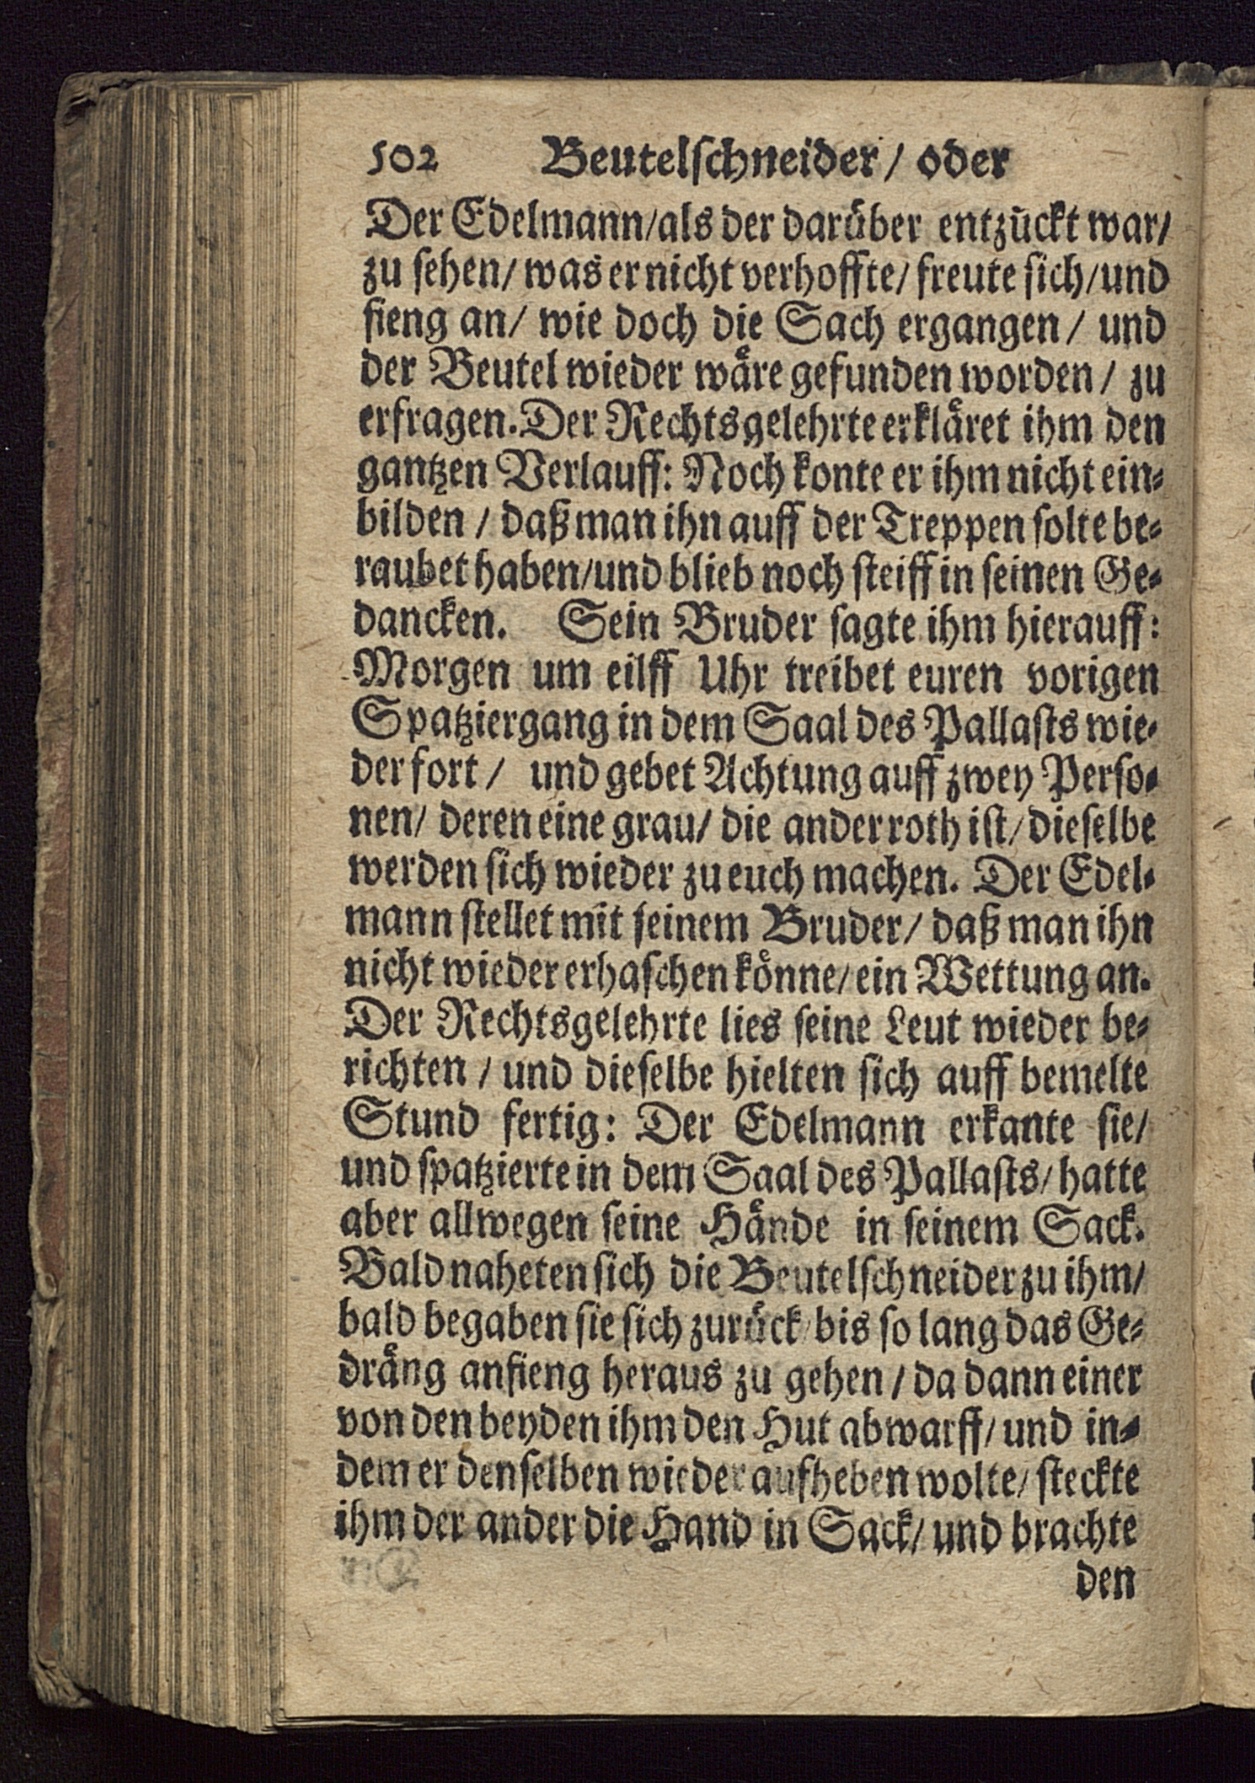 502 Beutelschneider/ oder
Der Edelmann/als der darüber entzückt war/
zu sehen/ was er nicht verhoffte/ freute sich/und
fieng an/ wie doch die Sach ergangen/ und
der Beutel wieder wäre gefunden worden/ zu
erfragen. Der Rechtsgelehrte erkläret ihm den
gantzen Verlauff: Noch konte er ihm nicht ein-
bilden / daß man ihn auff der Treppen solte be-
raubet haben/und blieb noch steiff in seinen Ge-
dancken. Sein Bruder sagte ihm hierauff:
Morgen um eilff Uhr treibet euren vorigen
Spatziergang in dem Saal des Pallasts wie-
der fort/ und gebet Achtung auff zwey Perso-
nen/ deren eine grau/ die ander roth ist/ dieselbe
werden sich wieder zu euch machen. Der Edel-
mann stellet mit seinem Bruder/ daß man ihn
nicht wieder erhaschen könne/ein Wettung an.
Der Rechtsgelehrte lies seine Leut wieder be-
richten / und dieselbe hielten sich auff bemelte
Stund fertig: Der Edelmann erkante sie/
und spatzierte in dem Saal des Pallasts/ hatte
aber allwegen seine Hände in seinem Sack.
Bald naheten sich die Beutelschneider zu ihm/
bald begaben sie sich zurück/bis so lang das Ge-
dräng anfieng heraus zu gehen / da dann einer
von den beyden ihm den Hut abwarff/ und in-
dem er denselben wieder aufheben wolte/ steckte
ihm der ander die Hand in Sack/ und brachte
den